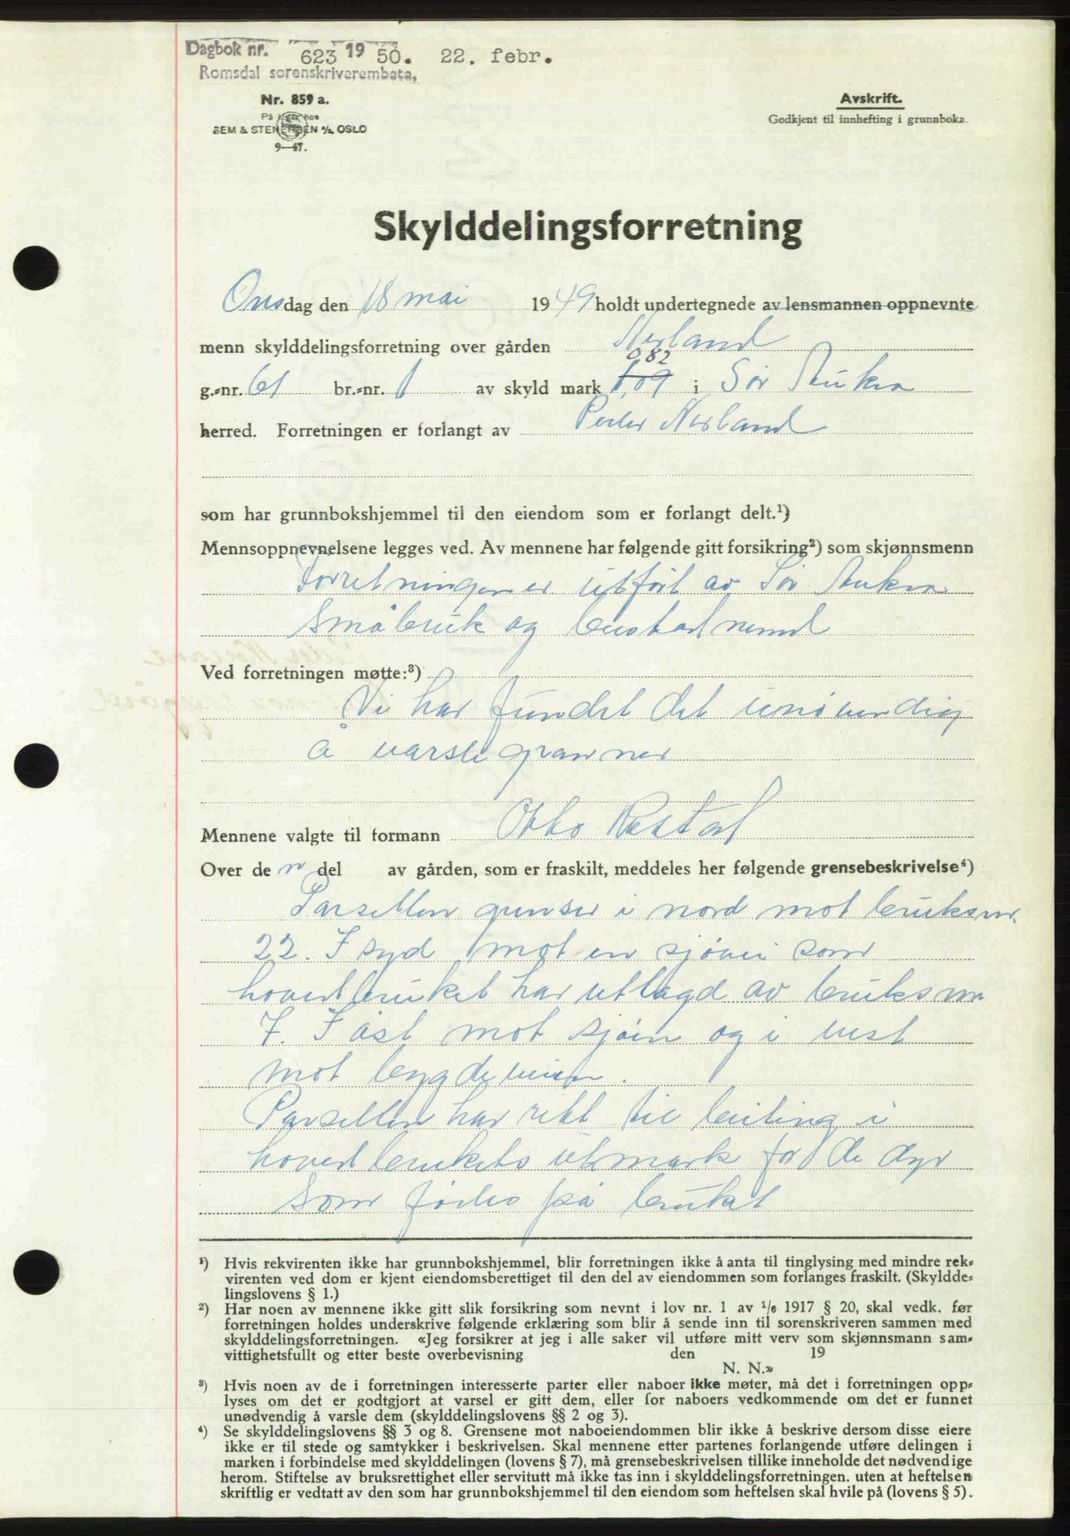 Dagbok nr. 623 1950. 22. febr.
Romsdal sorenskriverembete.
Nr. 859 a.
På lager hos
SEM & STENERSEN A/S, OSLO
9—47.
Avskrift.
Godkjent til innhefting i grunnboka.
Skylddelingsforretning
Onsdag den 18 mai 1949 holdt undertegnede av lensmannen oppnevnte
menn skylddelingsforretning over gården Nerland
0,82
g.-nr. 61 br.-nr. 1 av skyld mark 1,09 i Sør Aukra
herred. Forretningen er forlangt av Peder Nerland
som har grunnbokshjemmel til den eiendom som er forlangt delt.¹)
Mennsoppnevnelsene legges ved. Av mennene har følgende gitt forsikring²) som skjønnsmenn
Forretningen er utført av Sør Aukra
Småbruk og bustadnemd
Ved forretningen møtte:³)
Vi har fundet det unøvendig
å varsle grannner
Mennene valgte til formann Otto Rakstad
Over de n del av gården, som er fraskilt, meddeles her følgende grensebeskrivelse⁴)
Parsellen grenser i nord mot bruksnr.
22. I syd mot en sjøvei som
hovedbruket har utlagd av bruksnr
7. I øst mot sjøen og i vest
mot bygdeveien.
Parsellen har rett til beiting i
hovedbrukets utmark for de dyr
som fødes på bruket
¹) Hvis rekvirenten ikke har grunnbokshjemmel, blir forretningen ikke å anta til tinglysing med mindre rek-
virenten ved dom er kjent eiendomsberettiget til den del av eiendommen som forlanges fraskilt. (Skyldde-
lingslovens § 1.)
²) Har noen av mennene ikke gitt slik forsikring som nevnt i lov nr. 1 av 1/6 1917 § 20, skal vedk. før
forretningen holdes underskrive følgende erklæring som blir å sende inn til sorenskriveren sammen med
skylddelingsforretningen. «Jeg forsikrer at jeg i alle saker vil utføre mitt verv som skjønnsmann sam-
vittighetsfullt og etter beste overbevisning den 19
N. N.»
³) Hvis noen av de i forretningen interesserte parter eller naboer ikke møter, må det i forretningen opp-
lyses om det er godtgjort at varsel er gitt dem, eller for naboers vedkommende om det er funnet
unødvendig å varsle dem (skylddelingslovens §§ 2 og 3).
⁴) Se skylddelingslovens §§ 3 og 8. Grensene mot naboeiendommen blir ikke å beskrive dersom disse eiere
ikke er til stede og samtykker i beskrivelsen. Skal mennene etter partenes forlangende utføre delingen i
marken i forbindelse med skylddelingen (lovens § 7), må grensebeskrivelsen tillike inneholde det nødvendige
herom. Stiftelse av bruksrettighet eller servitutt må ikke tas inn i skylddelingsforretningen. uten at heftelsen
skriftlig er vedtatt av den som har grunnbokshjemmel til den eiendom som heftelsen skal hvile på (lovens § 5).